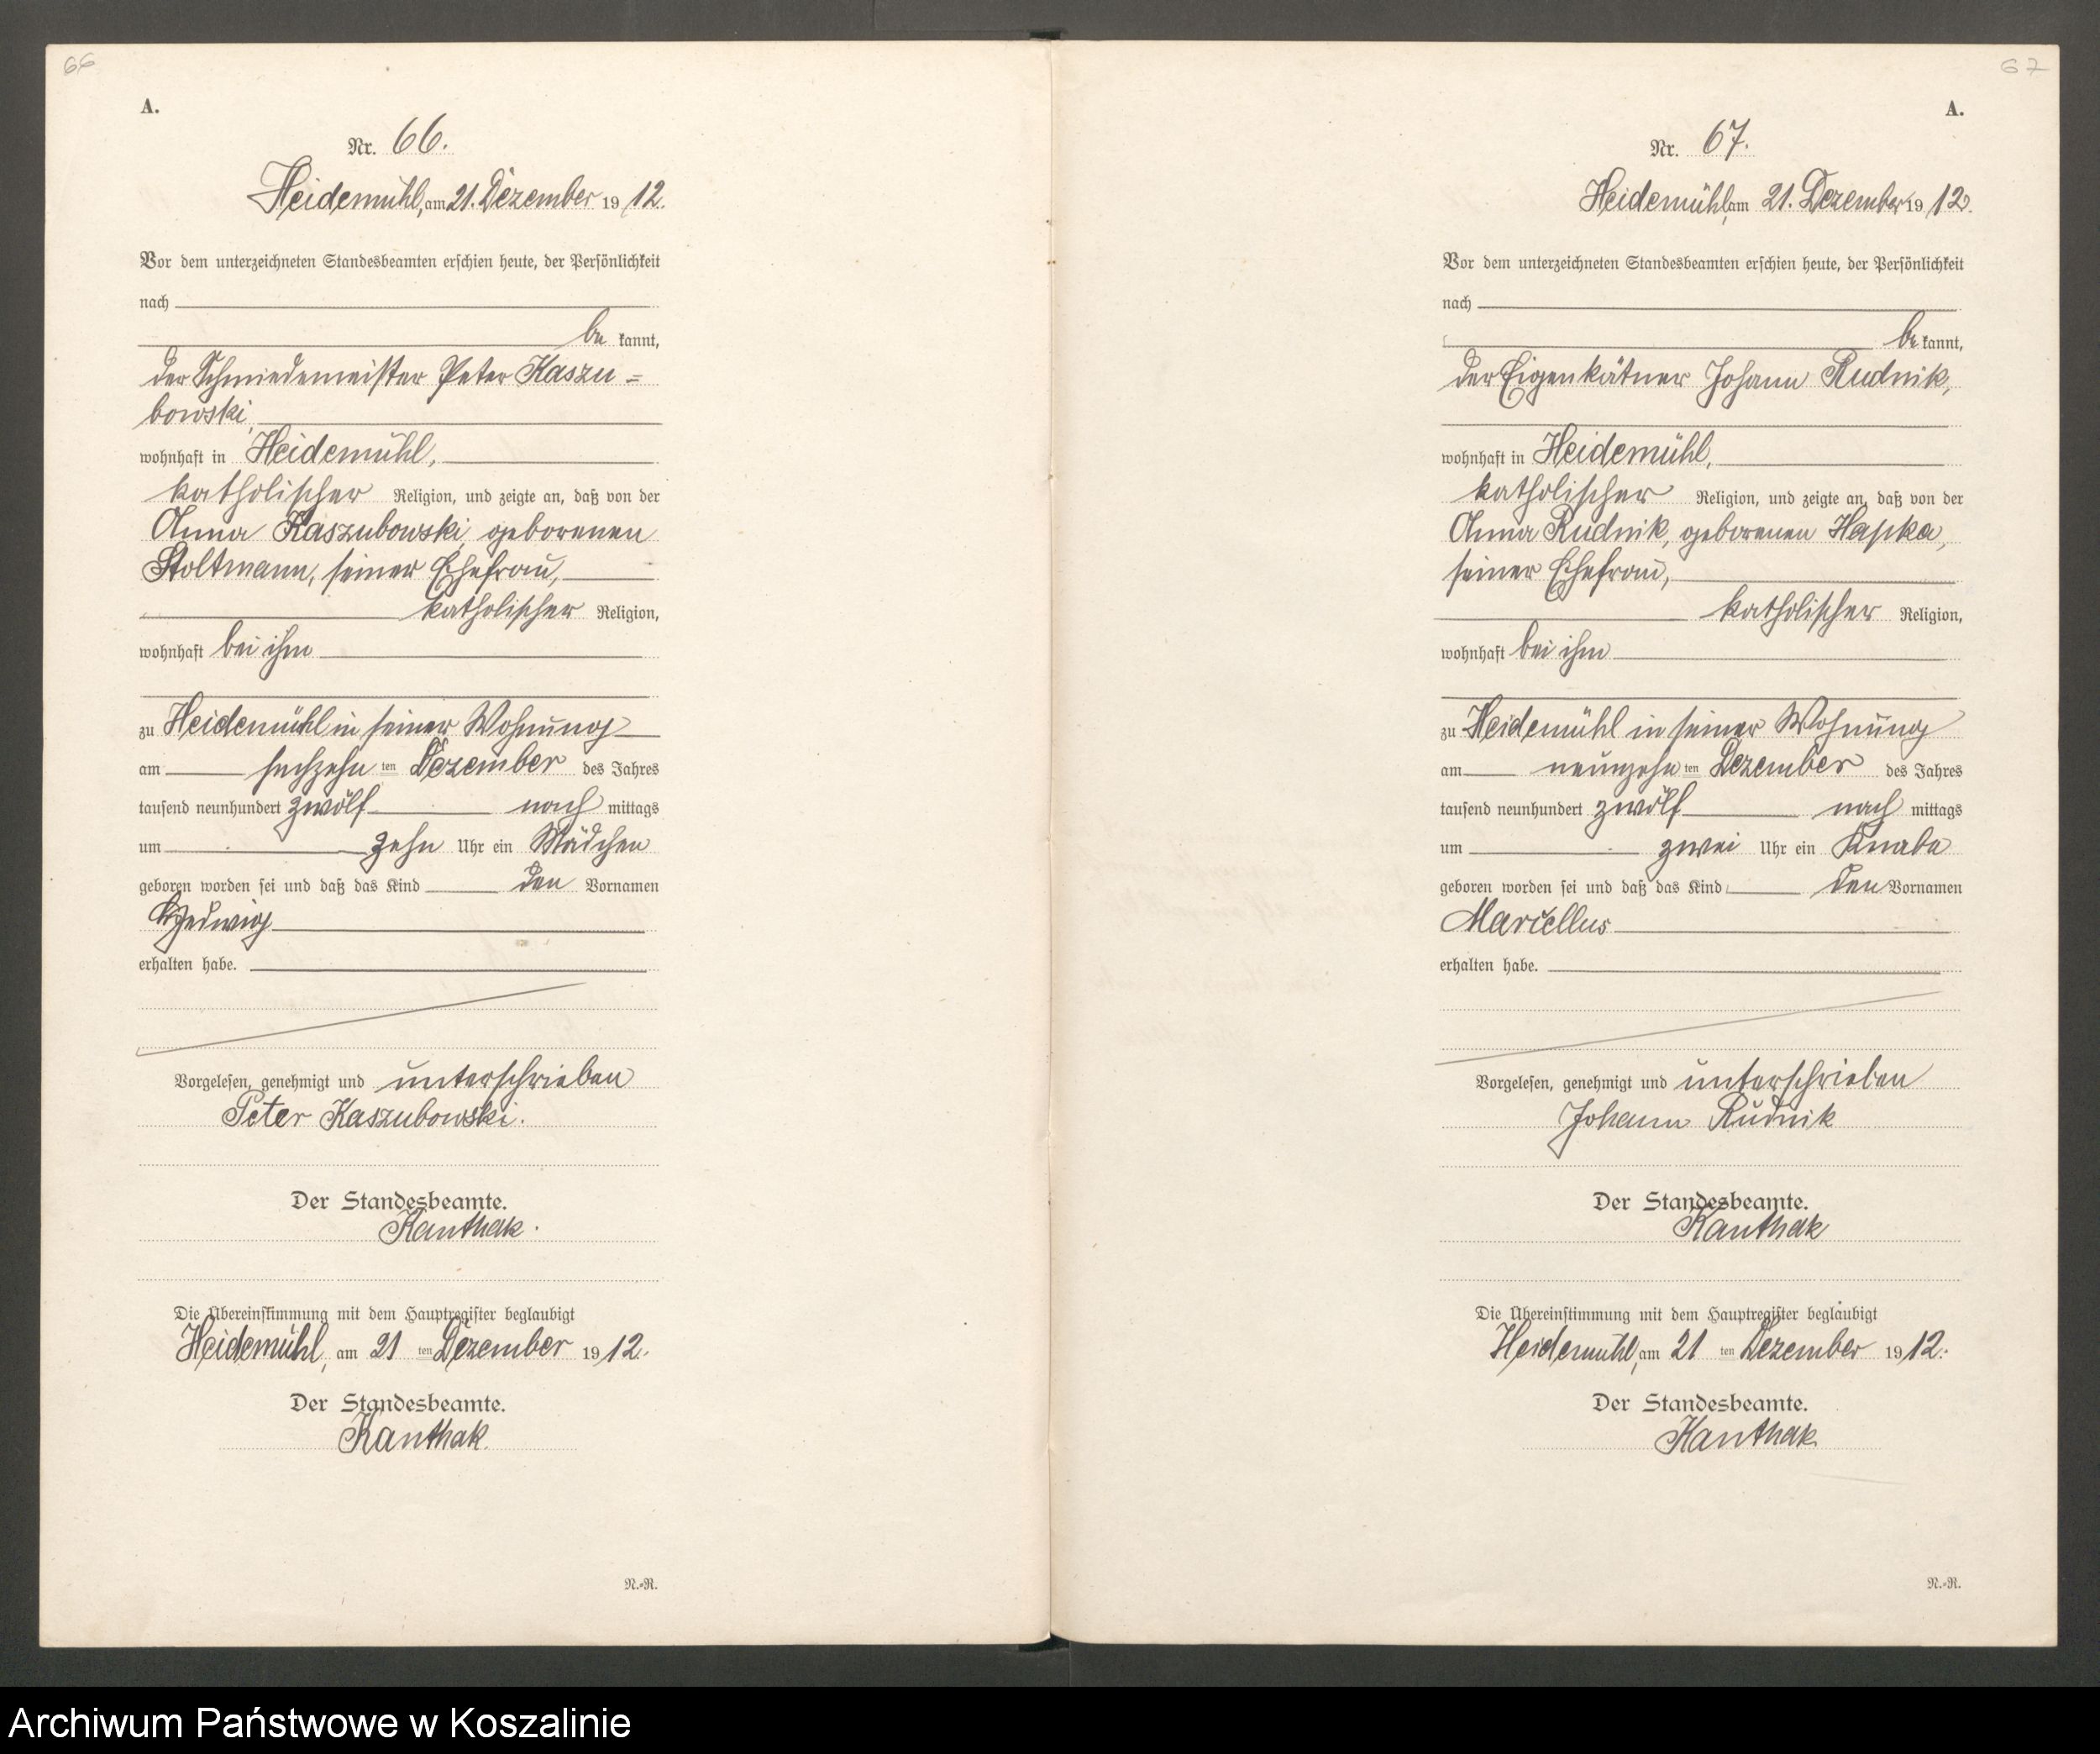 66
A.
Nr. 66.
Heidemühl, am 21. Dezember 1912.
Vor dem unterzeichneten Standesbeamten erschien heute, der Persönlichkeit
nach
be kannt,
der Schmiedemeister Peter Kaszu=
bowski,
wohnhaft in Heidemühl,
katholischer Religion, und zeigte an, daß von der
Anna Kaszubowski, geborenen
Stoltmann, seiner Ehefrau,
katholischer Religion,
wohnhaft bei ihm
zu Heidemühl in seiner Wohnung
am sechzehn ten Dezember des Jahres
tausend neunhundert zwölf nach mittags
um zehn Uhr ein Mädchen
geboren worden sei und daß das Kind den Vornamen
Hedwig
erhalten habe.
Vorgelesen, genehmigt und unterschrieben
Peter Kaszubowski.
Der Standesbeamte.
Kanthak.
Die Übereinstimmung mit dem Hauptregister beglaubigt
Heidemühl, am 21 ten Dezember 1912.
Der Standesbeamte.
Kanthak.
N.-R.
67
A.
Nr. 67.
Heidemühl, am 21. Dezember 1912.
Vor dem unterzeichneten Standesbeamten erschien heute, der Persönlichkeit
nach
be kannt,
der Eigenkätner Johann Rudnik,
wohnhaft in Heidemühl,
katholischer Religion, und zeigte an, daß von der
Anna Rudnik, geborenen Hapka,
seiner Ehefrau,
katholischer Religion,
wohnhaft bei ihm
zu Heidemühl in seiner Wohnung
am neunzehn ten Dezember des Jahres
tausend neunhundert zwölf nach mittags
um zwei Uhr ein Knabe
geboren worden sei und daß das Kind den Vornamen
Marcellus
erhalten habe.
Vorgelesen, genehmigt und unterschrieben
Johann Rudnik
Der Standesbeamte.
Kanthak
Die Übereinstimmung mit dem Hauptregister beglaubigt
Heidemühl, am 21 ten Dezember 1912.
Der Standesbeamte.
Kanthak
N.-R.
Archiwum Państwowe w Koszalinie